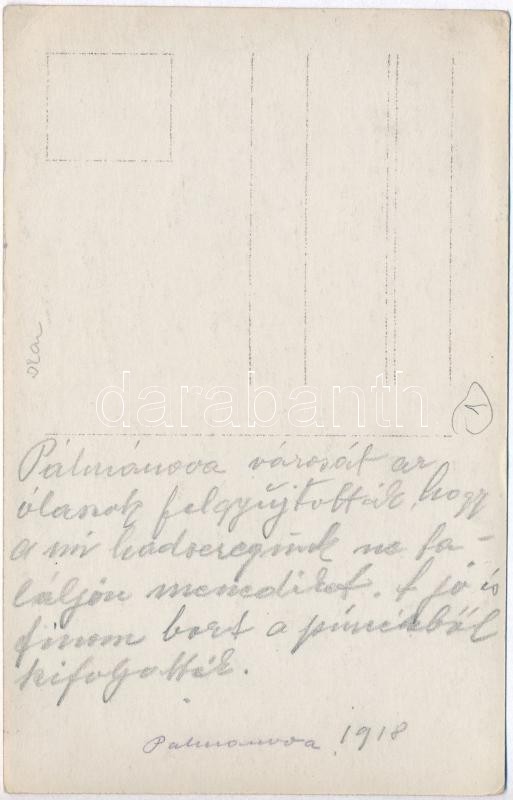 darabanth
1
Pálmánova városát az
olaszok felgyújtották, hogy
a mi hadseregünk ne ta-
láljon menedéket. A jó és
finom bort a pincékből
kifolyatták.
Palmanova 1918